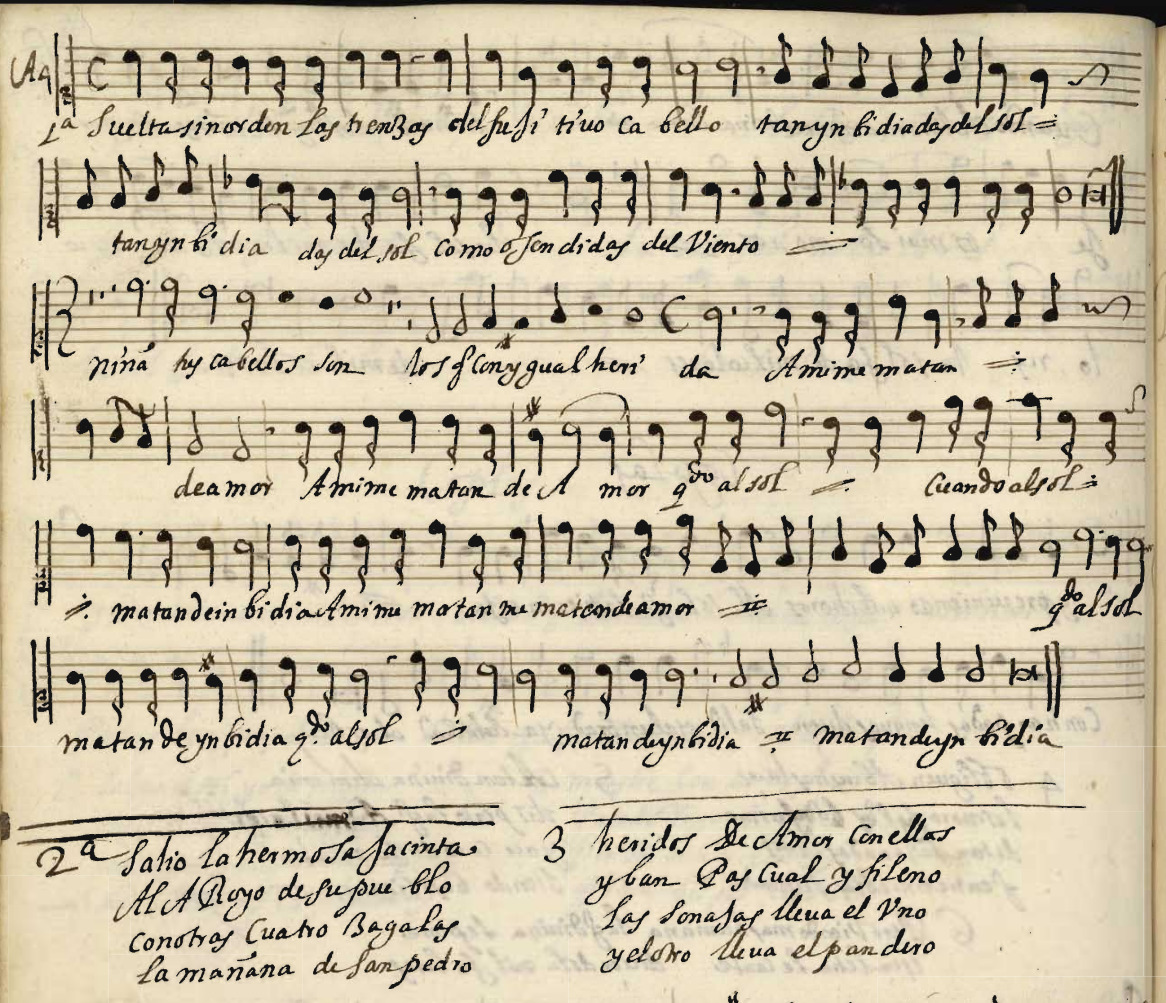 A4
1ª Suelta sin orden las trenzas del fujitiuo Cabello tan ynbidiadas del sol =
tan ynbidia das del sol como ofendidas del Viento =
niña tus cabellos son los q con ygual heri da A mi me matan =
de amor A mi me matan de A mor qdo al sol = Cuando al sol =
= matan de inbidia A mi me matan me matan de amor = qdo al sol
matan de ynbidia qdo al sol = matan de ynbidia = matan de yn bidia
2ª Salio la hermosa Jacinta
Al ARoyo de su pueblo
con otras Cuatro Zagalas
la mañana de San pedro
3 heridos De Amor con ellas
yban Pascual y fileno
las sonajas lleua el Vno
y el otro lleua el pandero